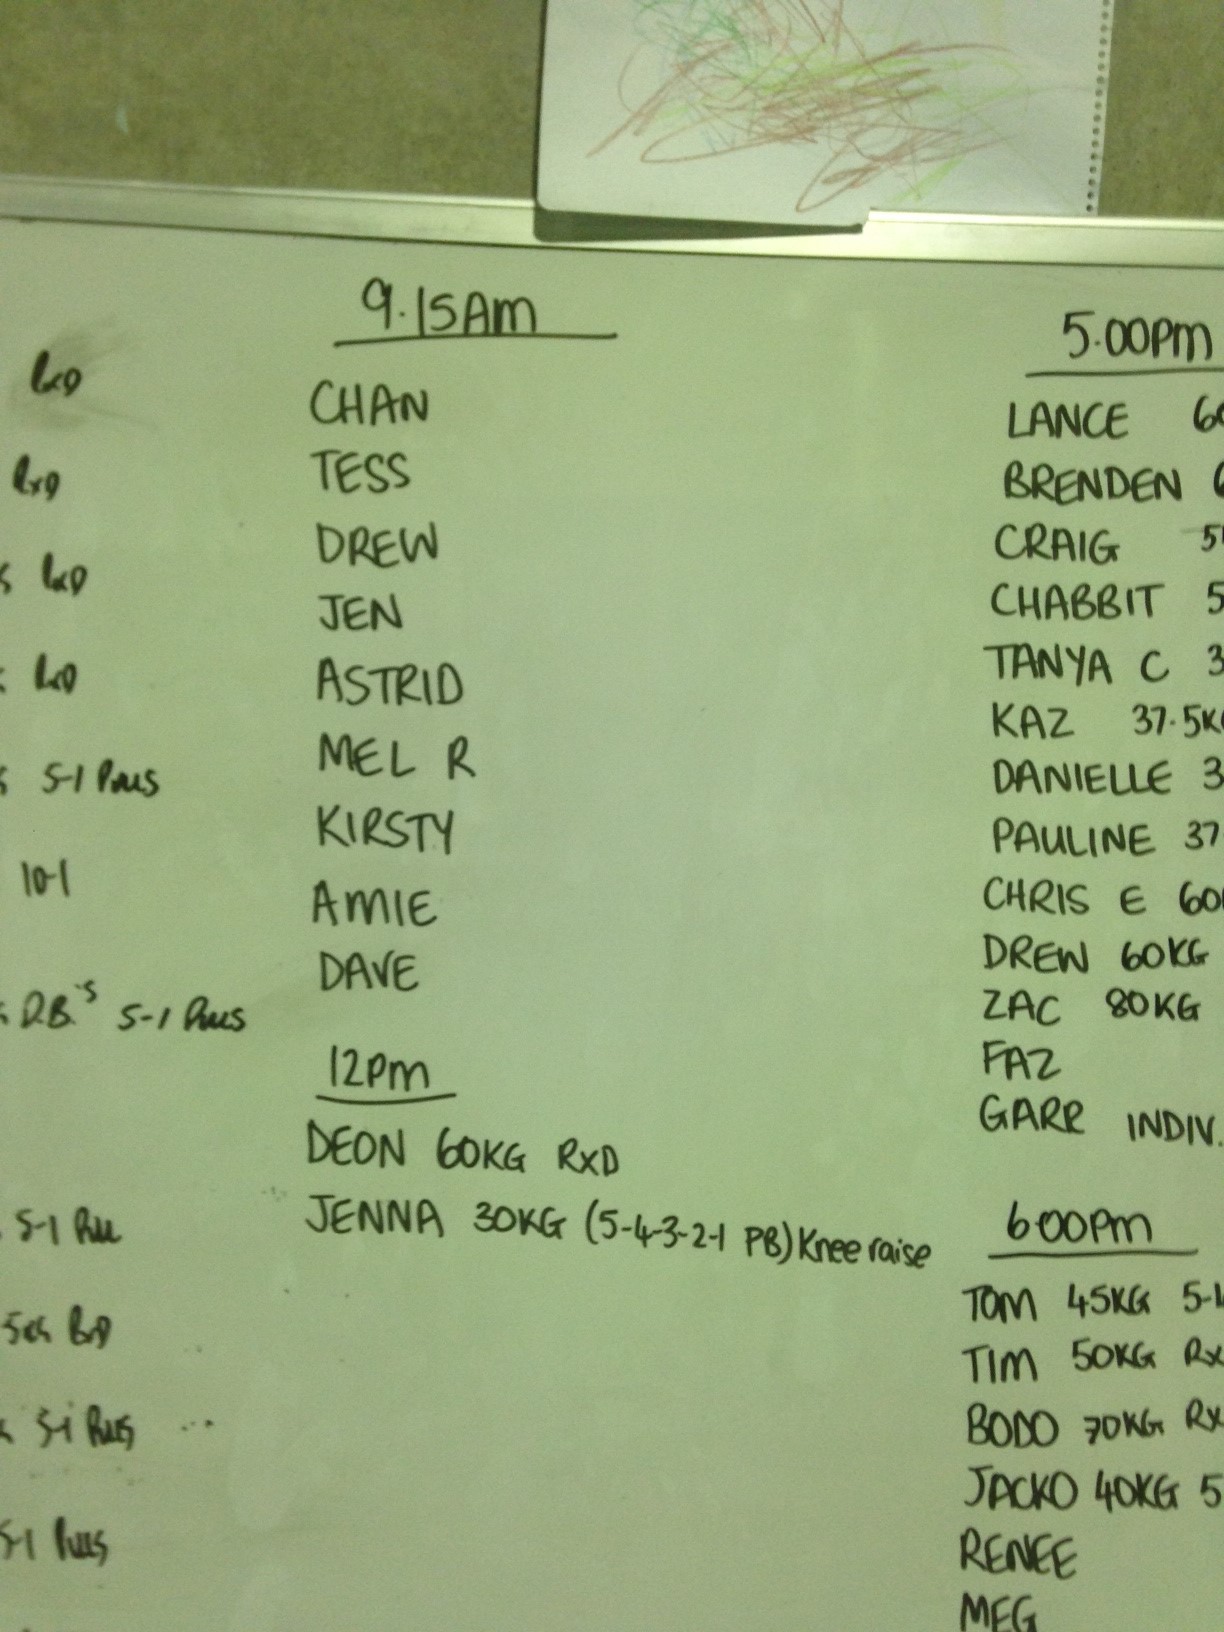 RxD
RxD
RxD
RxD
5-1
10-1
D.B.'s 5-1
5-1
5-1
5-1
9.15Am
CHAN
TESS
DREW
JEN
ASTRID
MEL R
KIRSTY
AMIE
DAVE
12pm
DEON 60KG RXD
JENNA 30KG (5-4-3-2-1 PB) Knee raise
5.00pm
LANCE
BRENDEN
CRAIG
CHABBIT
TANYA C
KAZ 37.5KG
DANIELLE
PAULINE 37
CHRIS E 60
DREW 60KG
ZAC 80KG
FAZ
GARR INDIV.
6.00pm
TOM 45KG 5-1
TIM 50KG Rx
BODO 70KG Rx
JACKO 40KG 5
RENEE
MEG